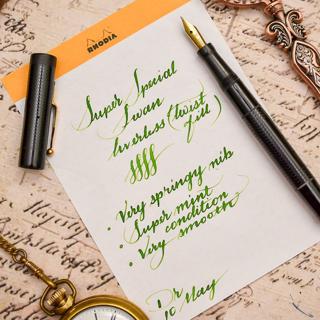 RHODIA
Super Special
Swan
leverless (twist
fill)
• Very springy nib
• Super mint
condition
• Very smooth
10 May